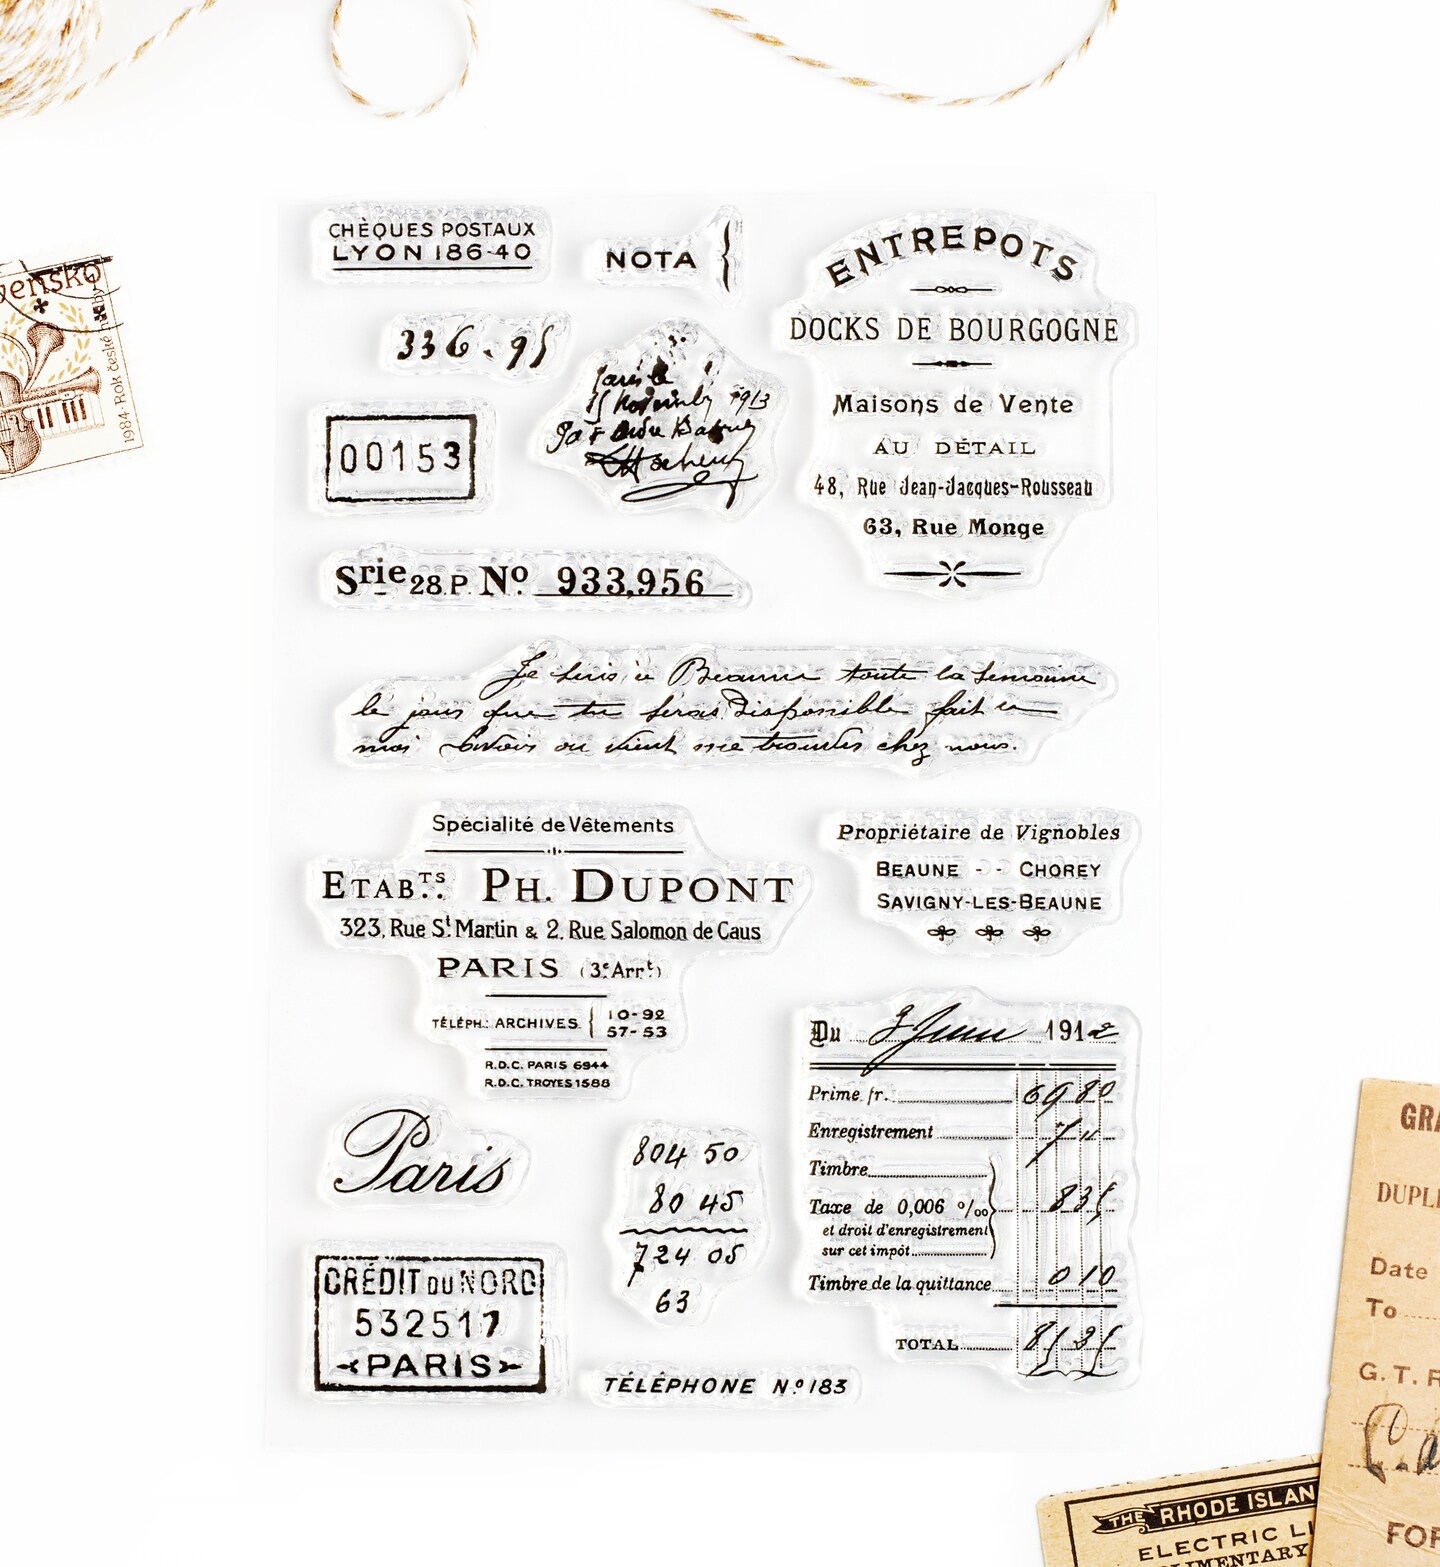 CHÈQUES POSTAUX
LYON 186-40
NOTA {
ENTREPOTS
DOCKS DE BOURGOGNE
Maisons de Vente
AU DÉTAIL
48, Rue Jean-Jacques-Rousseau
63, Rue Monge
336.95
1913
00153
Srie 28.P. No. 933,956
Je suis à Beaune toute la semaine
le jour que tu seras Disponible fait le
moi savoir ou vient me trouver chez nous.
Spécialité de Vêtements
ETABTS. PH. DUPONT
323, Rue St Martin & 2, Rue Salomon de Caus
PARIS (3e Arrt)
TÉLÉPH.: ARCHIVES { 10-92
57-53
R.D.C. PARIS 6944
R.D.C. TROYES 1588
Propriétaire de Vignobles
BEAUNE - - CHOREY
SAVIGNY-LES-BEAUNE
Du 3 Juin 1912
Prime fr. 69 80
Enregistrement 7 "
Timbre
Taxe de 0,006 o/oo 8 35
et droit d'enregistrement
sur cet impôt
Timbre de la quittance 0 10
TOTAL 85 35
Paris
804 50
80 45
724 05
63
CRÉDIT DU NORD
532517
PARIS
TÉLÉPHONE No 183
vensko
1984 · Rok české
GRA
DUPLI
Date
To
G. T. R
FOR
THE RHODE ISLAN
ELECTRIC LI
LIMENTARY